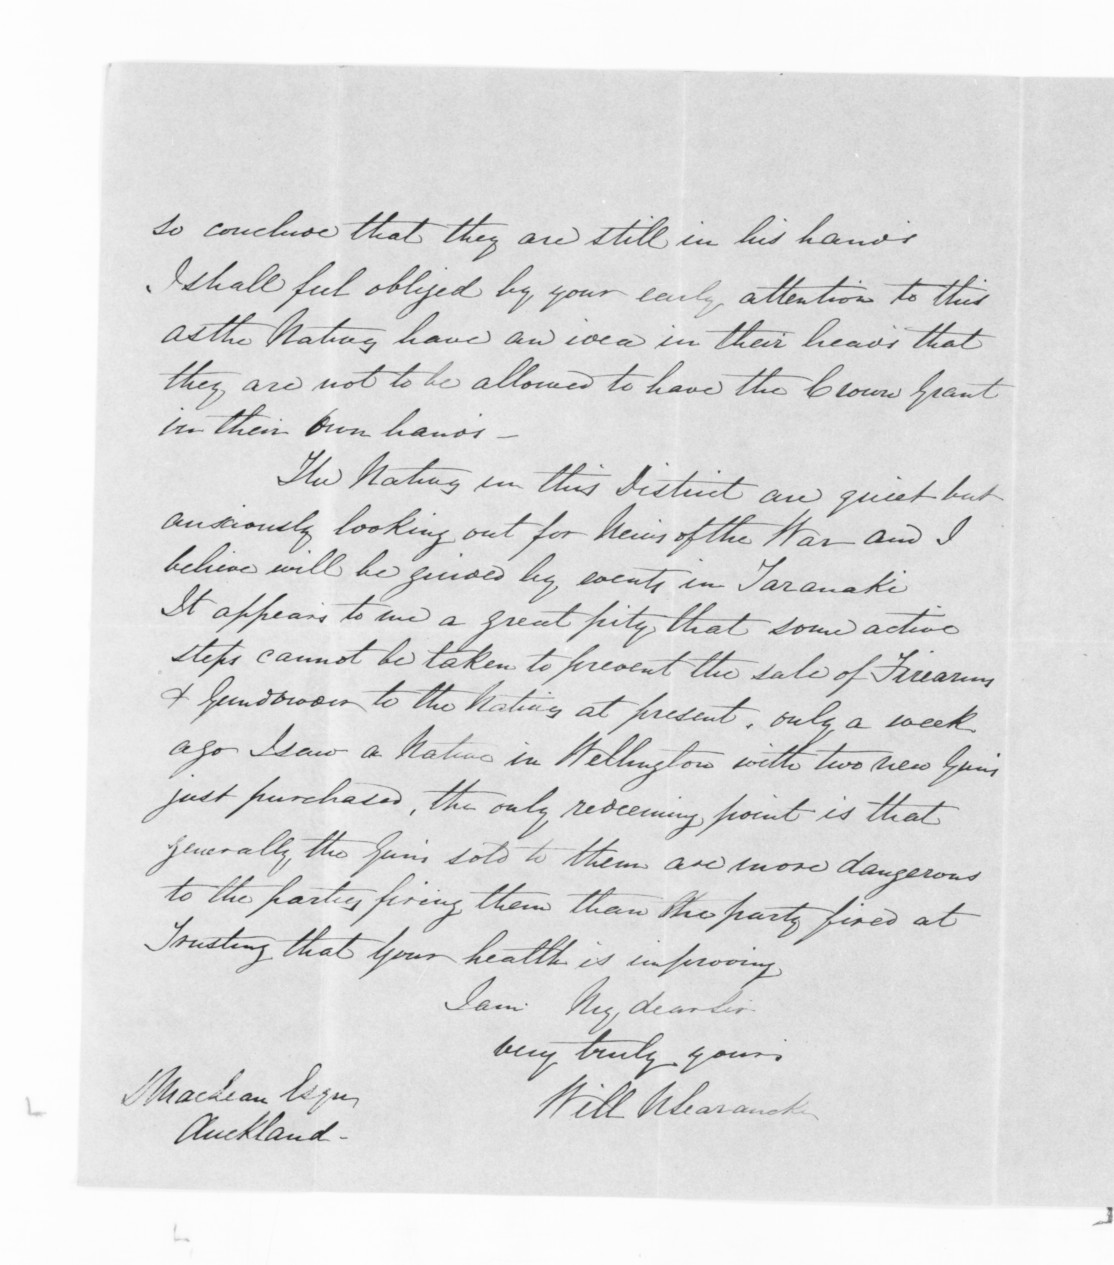 so conclude that they are still in his hands
I shall feel obliged by your early attention to this
as the Natives have an idea in their heads that
they are not to be allowed to have the Crown Grant
in their own hands -
The Natives in this District are quiet but
anxiously looking out for News of the War and I
believe will be guided by events in Taranaki
It appears to me a great pity that some active
steps cannot be taken to prevent the sale of Firearms
& Gunpowder to the Natives at present, only a week
ago I saw a Native in Wellington with two new Guns
just purchased, the only redeeming point is that
generally the Guns sold to them are more dangerous
to the parties firing them than the party fired at
Trusting that your health is improving
I am My dear Sir
very truly yours
Will N Searancke
D MacLean Esqr
Auckland -